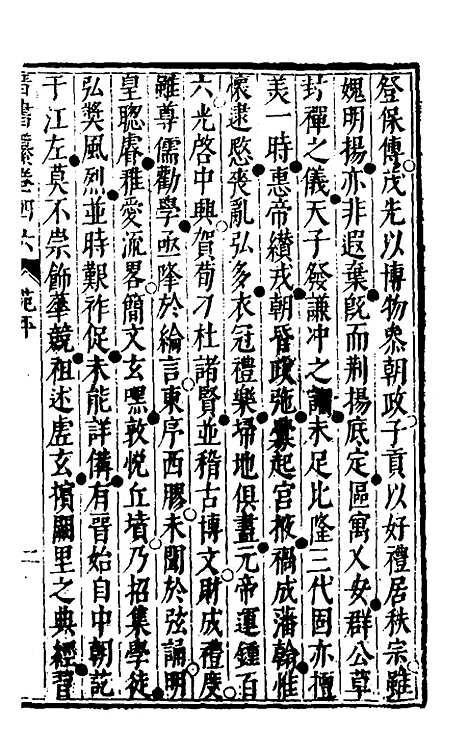 登保傅茂先以博物叅朝政子貢以好禮居秩宗雖
媿明揚亦非遐棄旣而荆揚底定區寓乂安群公草
封禪之儀天子發謙冲之未足比隆三代固亦擅
美一時惠帝纘戎朝昏政弛釁起宫掖禍成藩翰惟
懷逮愍喪亂弘多衣冠禮樂掃地俱盡元帝運鍾百
六光啓中興賀荀刁杜諸賢並稽古博文財成禮度
雖尊儒勸學亟降於綸言東序西膠未聞於弦誦明
皇聦睿雅愛流畧簡文玄嘿敦悅丘墳乃招集學徒
弘奬風烈並時艱祚促未能詳備有晉始自中朝訖
于江左莫不崇飾華競祖述虛玄擯闕里之典經習
晉書纂卷四六 范平 二